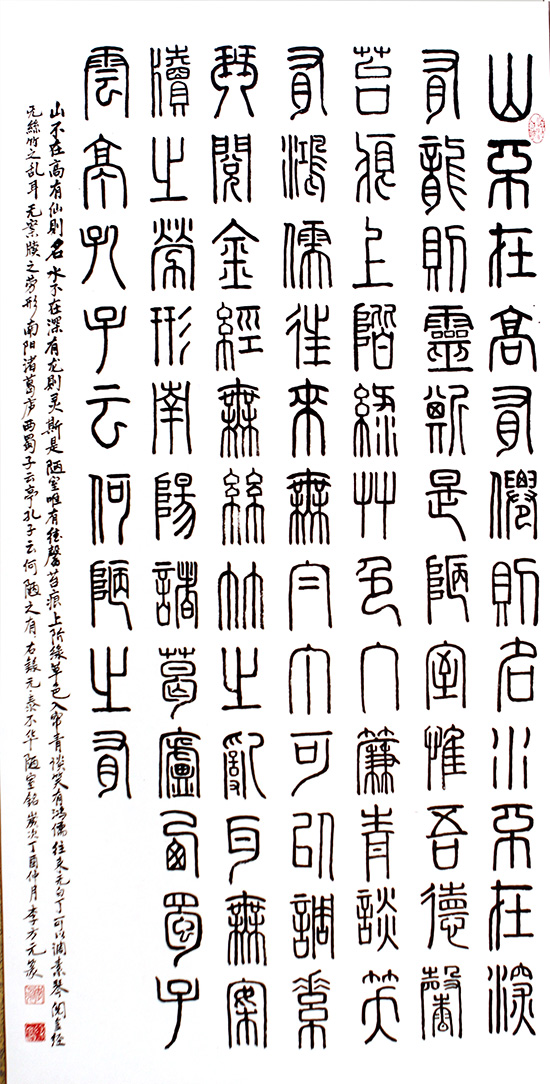 山不在高有僊則名水不在深
有龍則靈斯是陋室惟吾德馨
苔痕上階綠艸色入簾青談笑
有鴻儒往來無白丁可以調素
琴閱金經無絲竹之亂耳無案
牘之勞形南陽諸葛廬西蜀子
雲亭孔子云何陋之有
山不在高有仙则名水不在深有龙则灵斯是陋室唯有德馨苔痕上阶绿草色入帘青谈笑有鸿儒往来无白丁可以调素琴阅金经
无丝竹之乱耳无案牍之劳形南阳诸葛庐西蜀子云亭孔子云何陋之有右录元泰不华陋室铭岁次丁酉仲月李方元篆